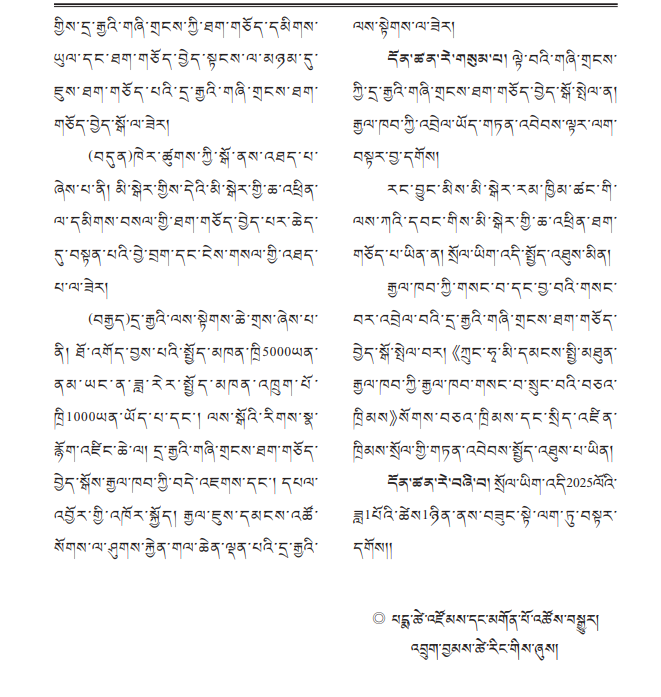 གྱིས་དྲ་རྒྱའི་གཞི་གྲངས་ཀྱི་ཐག་གཅོད་དམིགས་
ཡུལ་དང་ཐག་གཅོད་བྱེད་སྟངས་ལ་མཉམ་དུ་
ཇུས་ཐག་གཅོད་པའི་དྲ་རྒྱའི་གཞི་གྲངས་ཐག་
གཅོད་བྱེད་སྒོ་ལ་ཟེར།
(བདུན)ཁེར་ཚུགས་ཀྱི་སྒོ་ནས་འཐད་པ་
ཞེས་པ་ནི། མི་སྒེར་གྱིས་དེའི་མི་སྒེར་གྱི་ཆ་འཕྲིན་
ལ་དམིགས་བསལ་གྱི་ཐག་གཅོད་བྱེད་པར་ཆེད་
དུ་བསྟན་པའི་བྱེ་བྲག་དང་ངེས་གསལ་གྱི་འཐད་
པ་ལ་ཟེར།
(བརྒྱད)དྲ་རྒྱའི་ལས་སྟེགས་ཆེ་གྲས་ཞེས་པ་
ནི། ཐོ་འགོད་བྱས་པའི་སྤྱོད་མཁན་ཁྲི5000ཡན་
ནམ་ཡང་ན་ཟླ་རེར་སྤྱོད་མཁན་འཁྲུག་པོ་
ཁྲི1000ཡན་ཡོད་པ་དང་། ལས་སྒོའི་རིགས་སྣ་
རྙོག་འཛིང་ཆེ་ལ། དྲ་རྒྱའི་གཞི་གྲངས་ཐག་གཅོད་
བྱེད་སྒོས་རྒྱལ་ཁབ་ཀྱི་བདེ་འཇགས་དང་། དཔལ་
འབྱོར་གྱི་འཁོར་སྐྱོད། རྒྱལ་ཇུས་དམངས་འཚོ་
སོགས་ལ་ཤུགས་རྐྱེན་གལ་ཆེན་ལྡན་པའི་དྲ་རྒྱའི་
ལས་སྟེགས་ལ་ཟེར།
དོན་ཚན་རེ་གསུམ་པ། ལྟེ་བའི་གཞི་གྲངས་
ཀྱི་དྲ་རྒྱའི་གཞི་གྲངས་ཐག་གཅོད་བྱེད་སྒོ་སྤེལ་ན།
རྒྱལ་ཁབ་ཀྱི་འབྲེལ་ཡོད་གཏན་འབེབས་ལྟར་ལག་
བསྟར་བྱ་དགོས།
རང་བྱུང་མིས་མི་སྒེར་རམ་ཁྱིམ་ཚང་གི་
ལས་ཀའི་དབང་གིས་མི་སྒེར་གྱི་ཆ་འཕྲིན་ཐག་
གཅོད་པ་ཡིན་ན། སྲོལ་ཡིག་འདི་སྤྱོད་འཐུས་མིན།
རྒྱལ་ཁབ་ཀྱི་གསང་བ་དང་བྱ་བའི་གསང་
བར་འབྲེལ་བའི་དྲ་རྒྱའི་གཞི་གྲངས་ཐག་གཅོད་
བྱེད་སྒོ་སྤེལ་བར། 《ཀྲུང་ཧྭ་མི་དམངས་སྤྱི་མཐུན་
རྒྱལ་ཁབ་ཀྱི་རྒྱལ་ཁབ་གསང་བ་སྲུང་བའི་བཅའ་
ཁྲིམས》སོགས་བཅའ་ཁྲིམས་དང་སྲིད་འཛིན་
ཁྲིམས་སྲོལ་གྱི་གཏན་འབེབས་སྤྱོད་འཐུས་པ་ཡིན།
དོན་ཚན་རེ་བཞི་བ། སྲོལ་ཡིག་འདི་2025ལོའི་
ཟླ1པོའི་ཚེས1ཉིན་ནས་བཟུང་སྟེ་ལག་ཏུ་བསྟར་
དགོས།།
◎ པདྨ་ཚེ་འཛོམས་དང་མགོན་པོ་འཚོས་བསྒྱུར།
འབྲུག་བྱམས་ཚེ་རིང་གིས་ཞུས།